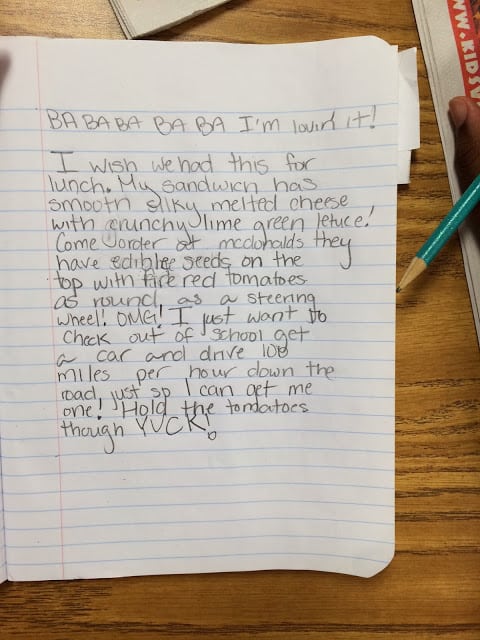 BA BA BA BA BA I'm lovin' it!
I wish we had this for
lunch. My sandwich has
smooth silky melted cheese
with crunchy lime green letuce!
Come order at mcdonalds they
have edible seeds on the
top with fire red tomatoes
as round as a steering
wheel! OMG! I just want to
check out of school get
a car and drive 100
miles per hour down the
road just so I can get me
one! Hold the tomatoes
though YUCK!
WWW.KIDSV